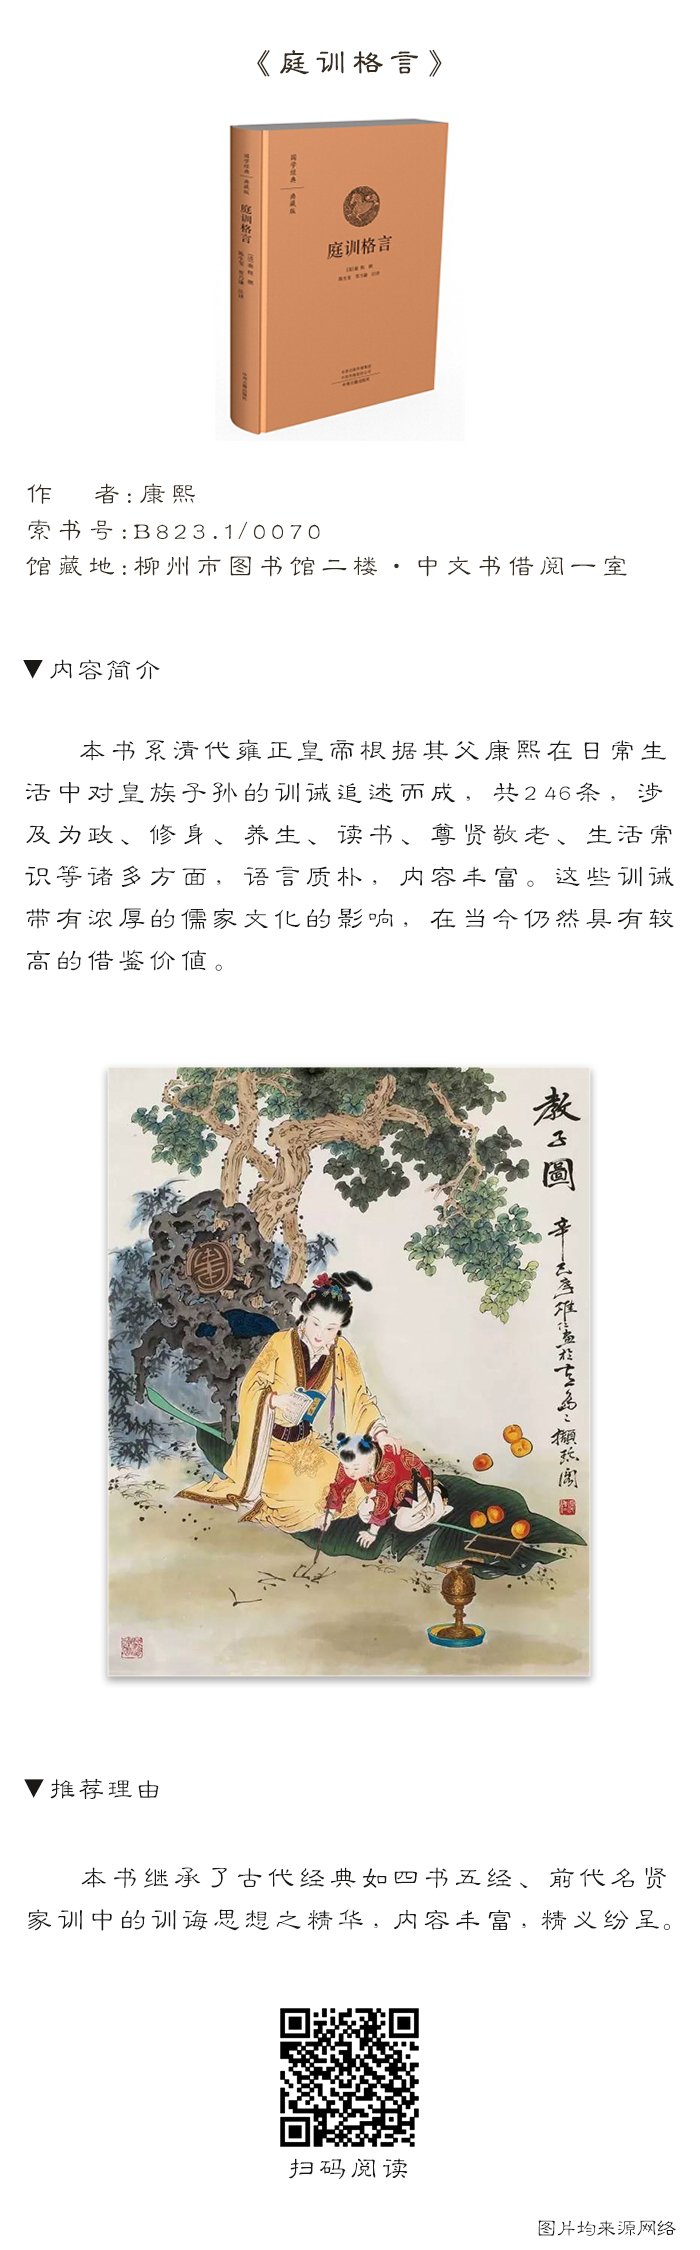 《庭训格言》
国学经典
典藏版
庭训格言
国学经典
典藏版
庭训格言
作 者:康熙
索书号:B823.1/0070
馆藏地:柳州市图书馆二楼·中文书借阅一室
▼内容简介
本书系清代雍正皇帝根据其父康熙在日常生
活中对皇族子孙的训诫追述而成，共246条，涉
及为政、修身、养生、读书、尊贤敬老、生活常
识等诸多方面，语言质朴，内容丰富。这些训诫
带有浓厚的儒家文化的影响，在当今仍然具有较
高的借鉴价值。
教子圖
▼推荐理由
本书继承了古代经典如四书五经、前代名贤
家训中的训诲思想之精华，内容丰富，精义纷呈。
扫码阅读
图片均来源网络